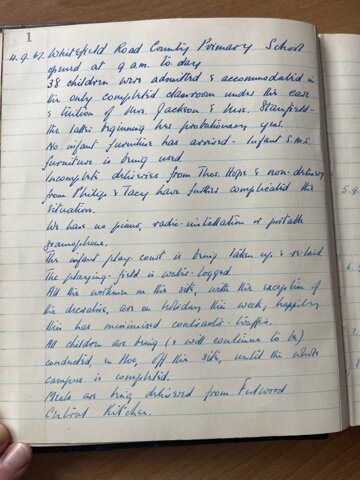 1
4.9.67. Whitefield Road County Primary School
opened at 9 a.m. to-day
38 children were admitted & accommodated in
the only completed classroom under the care
& tuition of Mrs. Jackson & Mrs. Stanfield -
the latter beginning her probationary year.
No infant furniture has arrived - Infant S.M.S.
furniture is being used
Incomplete deliveries from Thos. Hope & non-delivery
from Philip & Tacey have further complicated the
situation.
We have no piano, radio-installation or portable
gramophone.
The infant play-court is being taken up & re-laid
The playing-field is water-logged
All the workmen on the site, with the exception of
the decorators, are on holiday this week, happily
this has minimised contractors traffic.
All children are being (& will continue to be)
conducted, on the, off the site, until the whole
campus is completed.
Meals are being delivered from Fulwood
Central Kitchen.
5.9.
6.9
7.